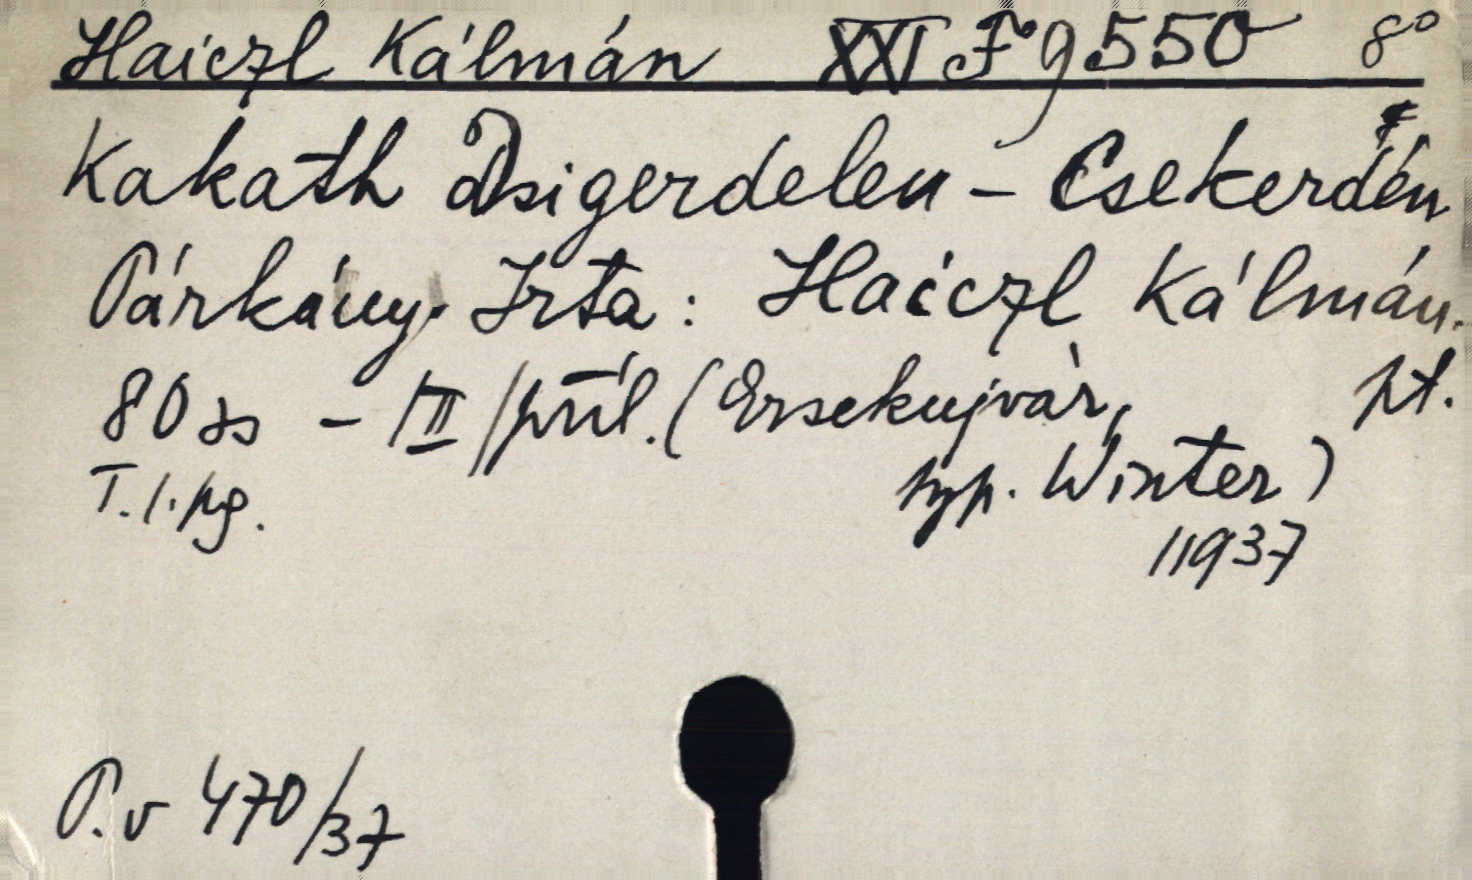 Haiczl Kálmán XXI F 9550 8°
Kakath Dsigerdelen - Csekerdén
Párkány. Irta: Haiczl Kálmán.
80 ss - III příl. (Ersekujvár, pt.
T. l. pg. typ. Winter)
1937
P. v 470/37